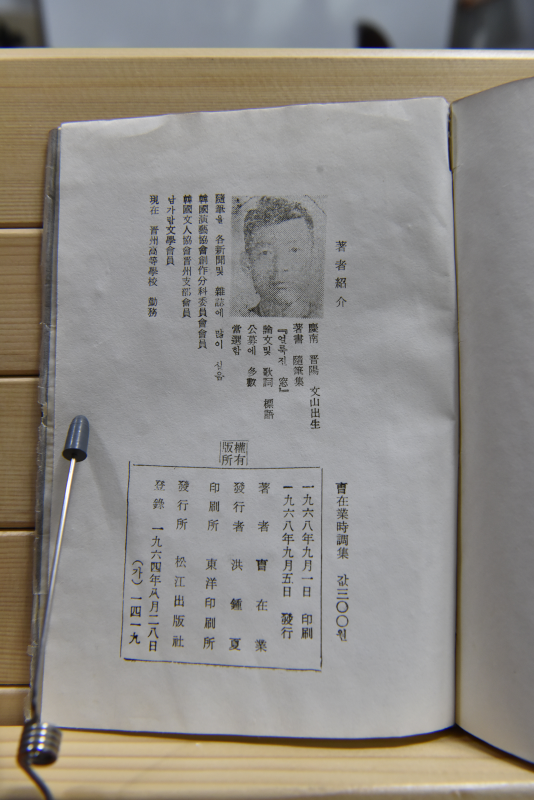 著者紹介
慶南 晋陽 文山出生
著書 隨筆集
『얼룩진 窓』
論文및 歌詞 標語
公募에 多數
當選함
隨筆을 各新聞및 雜誌에 많이 실음
韓國演藝協會創作分科委員會會員
韓國文人協會晋州支部會員
남가람文學會員
現在 晋州高等學校 勤務
版權
所有
曺在業時調集 값三〇〇원
一九六八年九月一日 印刷
一九六八年九月五日 發行
著者 曺在業
發行者 洪鍾夏
印刷所 東洋印刷所
發行所 松江出版社
登錄 一九六四年八月二八日
(가) 一四一九